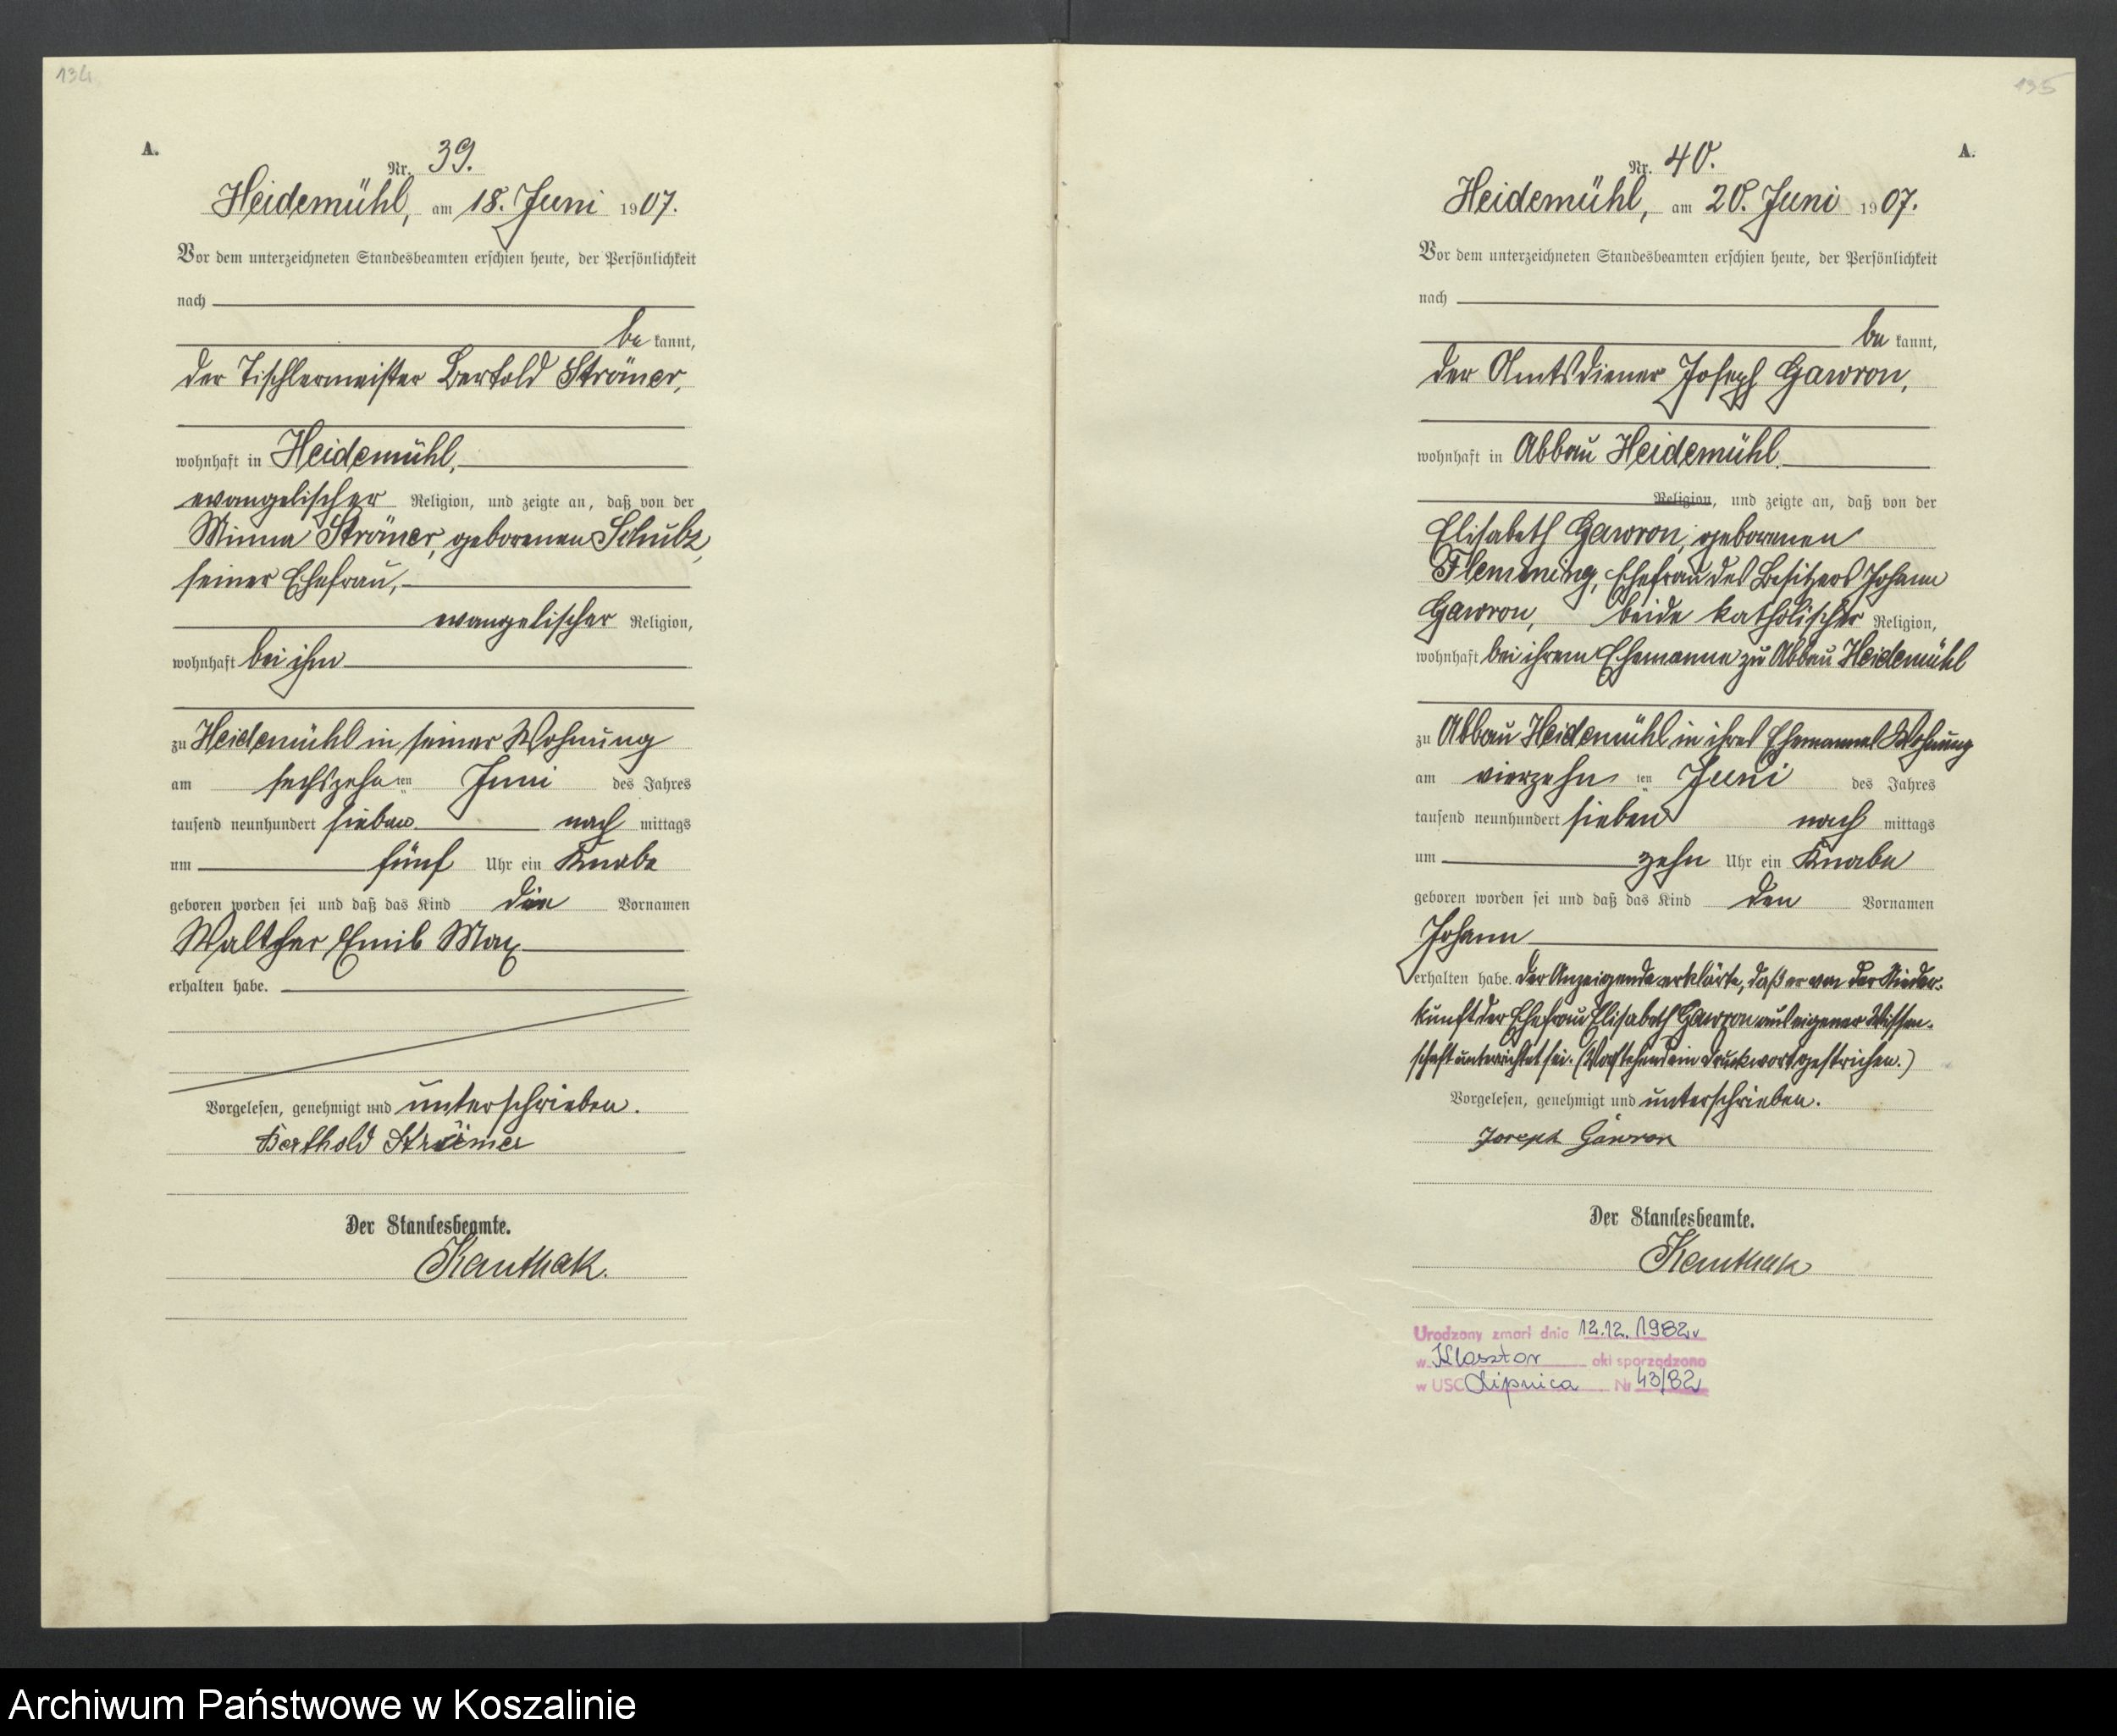 134
A.
Nr. 39.
Heidemühl, am 18. Juni 1907.
Vor dem unterzeichneten Standesbeamten erschien heute, der Persönlichkeit
nach
be kannt,
der Tischlermeister Bertold Strömer,
wohnhaft in Heidemühl,
evangelischer Religion, und zeigte an, daß von der
Minna Strömer, geborenen Schulz,
seiner Ehefrau,
evangelischer Religion,
wohnhaft bei ihm
zu Heidemühl in seiner Wohnung
am sechszehn ten Juni des Jahres
tausend neunhundert sieben nach mittags
um fünf Uhr ein Knabe
geboren worden sei und daß das Kind die Vornamen
Walther Emil Max
erhalten habe.
Vorgelesen, genehmigt und unterschrieben.
Berthold Strömer
Der Standesbeamte.
Kauthak.
195
A.
Nr. 40.
Heidemühl, am 20. Juni 1907.
Vor dem unterzeichneten Standesbeamten erschien heute, der Persönlichkeit
nach
be kannt,
der Amtsdiener Joseph Gawron,
wohnhaft in Abbau Heidemühl
Religion, und zeigte an, daß von der
Elisabeth Gawron, geborenen
Flemming, Ehefrau des Besitzers Johann
Gawron, beide katholischer Religion,
wohnhaft bei ihrem Ehemanne zu Abbau Heidemühl
zu Abbau Heidemühl in ihres Ehemannes Wohnung
am vierzehn ten Juni des Jahres
tausend neunhundert sieben nach mittags
um zehn Uhr ein Knabe
geboren worden sei und daß das Kind den Vornamen
Johann
erhalten habe. Der Anzeigende erklärte, daß er von der Nieder-
kunft der Ehefrau Elisabeth Gawron aus eigener Wissen-
schaft unterrichtet sei. (Vorstehend ein Druckwort gestrichen.)
Vorgelesen, genehmigt und unterschrieben.
Joseph Gawron
Der Standesbeamte.
Kauthak
Urodzony zmarł dnia 12.12.1982 r
w Klasztor akt sporządzono
w USC Lipnica Nr 43/82
Archiwum Państwowe w Koszalinie